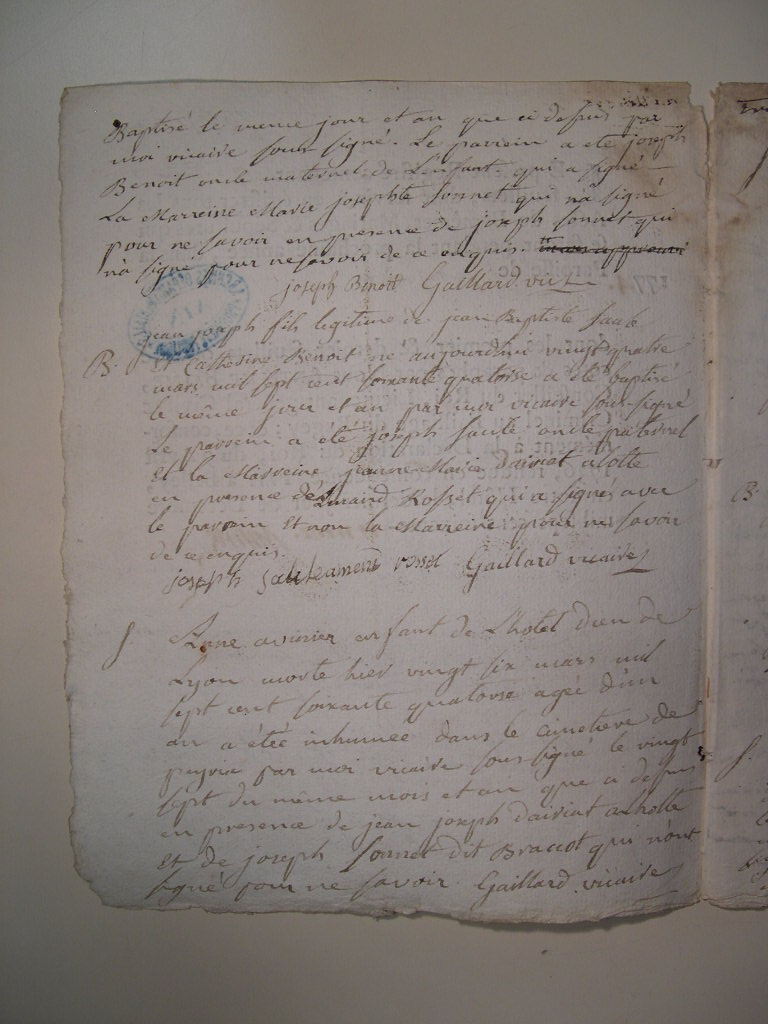 Baptisé le meme jour et an que ci dessus par
moi vicaire sous signé. Le parrein a eté joseph
Benoit oncle maternel de L'enfant qui a signé
La Marreine Marie josephte Sonnet qui n'a signé
pour ne savoir en presence de joseph sonnet qui
n'a signé pour ne savoir de ce enquis.
joseph Benoit Gaillard vic
jean joseph fils legitime de jean Baptiste saule
B. et Catherine Benoit né aujourdhui vingt quatre
mars mil sept cent soixante quatorse a été baptisé
le même jour et an par moi vicaire sous-signé
Le parrein a eté joseph saule oncle paternel
et la Marreine jeanne Marie
en presence de Rosset qui a signé avec
le parrain et non la Marreine pour ne savoir
de ce enquis.
joseph rosset Gaillard vicaire
S Anne enfant de L'hotel dieu de
Lyon morte hier vingt six mars mil
sept cent soixante quatorse agée d'un
an a étée inhumée dans le cimetiere de
peyria par moi vicaire sous-signé le vingt
sept du même mois et an que ci dessus
en presence de jean joseph
et de joseph sonnet dit Braccot qui n'ont
signé pour ne savoir Gaillard vicaire
B
S.